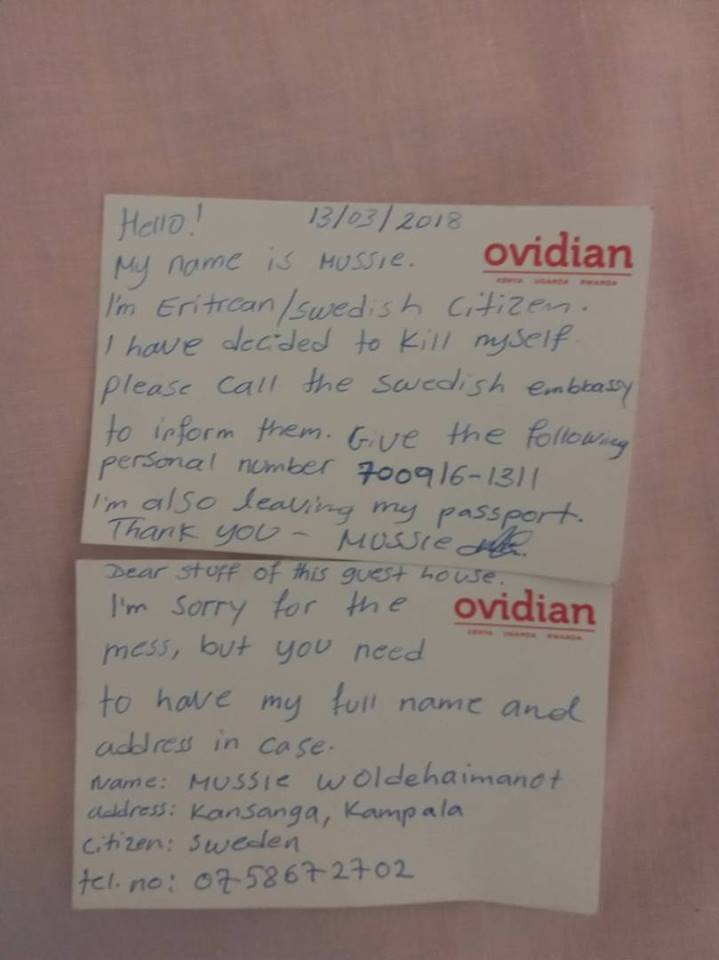 Hello! 13/03/2018
ovidian
KENYA UGANDA RWANDA
My name is MUSSIE.
I'm Eritrean/Swedish Citizen.
I have decided to kill myself.
please call the swedish embbassy
to inform them. Give the following
personal number 700916-1311
I'm also leaving my passport.
Thank you - MUSSIE
Dear stuff of this guest house.
ovidian
KENYA UGANDA RWANDA
I'm sorry for the
mess, but you need
to have my full name and
address in case.
Name: MUSSIE Woldehaimanot
address: Kansanga, Kampala
Citizen: Sweden
tel. no: 0758672702